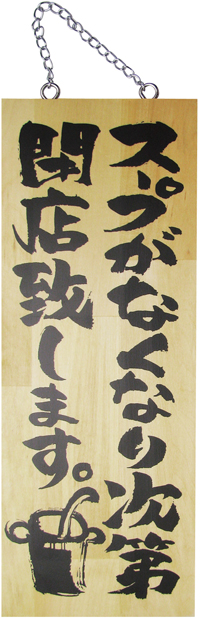 スープがなくなり次第
閉店致します。